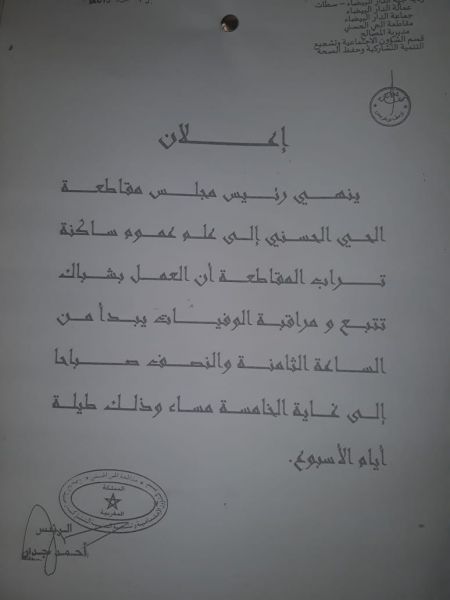 عمالة الدار البيضاء
جماعة الدار البيضاء
مقاطعة الحي الحسني
مديرية المصالح
قسم الشؤون الاجتماعية وتشجيع
التنمية التشاركية وحفظ الصحة
إعـــــلان
ينهـــي رئـــيس مجلـــس مقاطعـــة
الحي الحسني إلـى علـم عمـوم سـاكنة
تـراب المقاطعـة أن العمـل بشبـاك
تتبع و مراقبـة الوفيـات يبـدأ مـن
السـاعة الثامنـة والنصـف صـباحا
إلـى غـاية الخامسـة مسـاء وذلـك طيلـة
أيام الأسبوع.
المملكة
المغربية
الرئيس
أحمد جدار